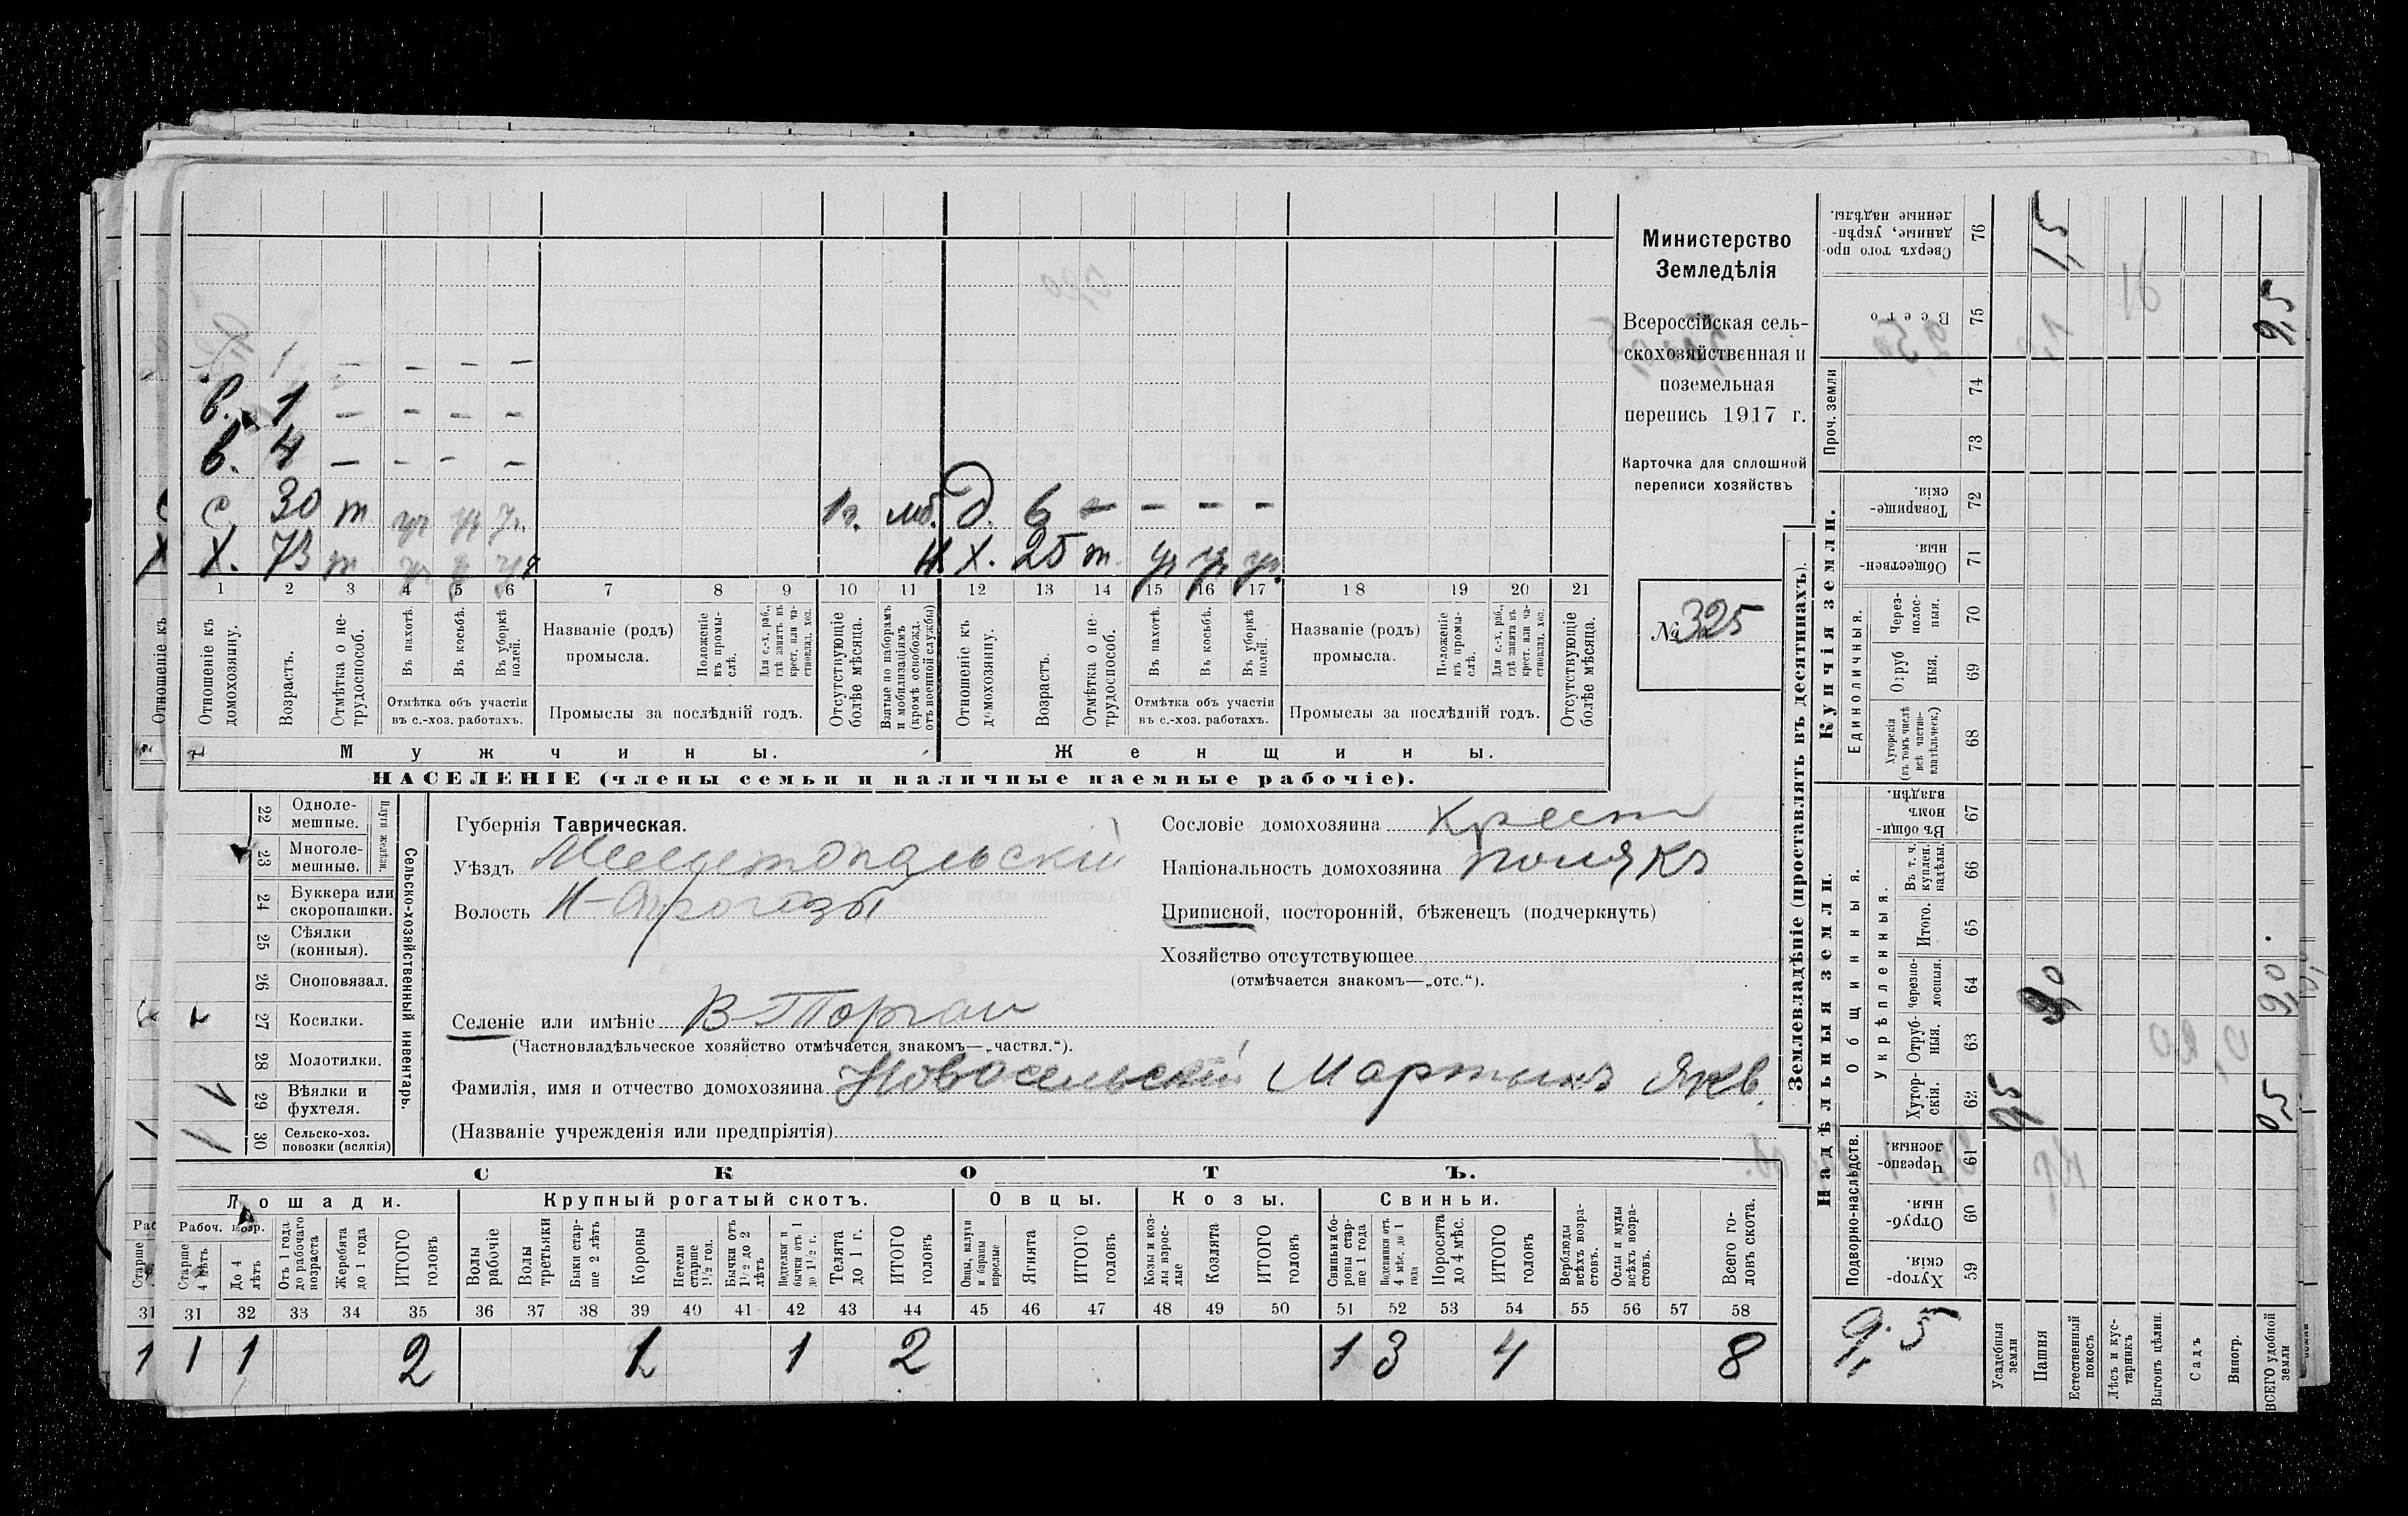 в. 1 — — — —
в. 4 — — — —
с 30 т уч уч уч. 1 г. моб. д. 6 — — — —
Х. 73 т Н. Х. 25 т. уч уч уч.
1 2 3 4 5 6 7 8 9 10 11 12 13 14 15 16 17 18 19 20 21
Отношеніе къ домохозяину.
Возрастъ.
Отмѣтка о нетрудоспособ.
Въ пахотѣ.
Въ косьбѣ.
Въ уборкѣ полей.
Отмѣтка объ участіи
въ с.-хоз. работахъ.
Названіе (родъ)
промысла.
Положеніе въ промыслѣ.
Для с.-х. раб., гдѣ занятъ въ крест. или частновлад. хоз.
Промыслы за послѣдній годъ.
Отсутствующіе болѣе мѣсяца.
Взятые по наборамъ и мобилизаціямъ (кромѣ освобожд. отъ военной службы)
Отношеніе къ домохозяину.
Возрастъ.
Отмѣтка о нетрудоспособ.
Въ пахотѣ.
Въ косьбѣ.
Въ уборкѣ полей.
Отмѣтка объ участіи
въ с.-хоз. работахъ.
Названіе (родъ)
промысла.
Положеніе въ промыслѣ.
Для с.-х. раб., гдѣ занята въ крест. или частновлад. хоз.
Промыслы за послѣдній годъ.
Отсутствующіе болѣе мѣсяца.
Мужчины. Женщины.
НАСЕЛЕНІЕ (члены семьи и наличные наемные рабочіе).
Министерство
Земледѣлія
Всероссійская сель-
скохозяйственная и
поземельная
перепись 1917 г.
Карточка для сплошной
переписи хозяйствъ
№ 325
Сельско-хозяйственный инвентарь.
Плуги желѣзн.
22 Одноле-
мешные.
23 Многоле-
мешные.
24 Буккера или
скоропашки.
25 Сѣялки
(конныя).
26 Сноповязал.
27 Косилки.
28 Молотилки.
1 29 Вѣялки и
фухтеля.
1 30 Сельско-хоз.
повозки (всякія)
Губернія Таврическая.
Уѣздъ Мелитопольскій
Волость Н-Сѣрогозы
Селеніе или имѣніе В-Торгаи
(Частновладѣльческое хозяйство отмѣчается знакомъ—„частвл.“).
Фамилія, имя и отчество домохозяина Новосельскій Мартынъ Якв.
(Названіе учрежденія или предпріятія)
Сословіе домохозяина Крест
Національность домохозяина полякъ
Приписной, посторонній, бѣженецъ (подчеркнуть)
Хозяйство отсутствующее
(отмѣчается знакомъ—„отс.“).
СКОТЪ.
Лошади. Крупный рогатый скотъ. Овцы. Козы. Свиньи.
Рабоч. возр.
Старше 4 лѣтъ
До 4 лѣтъ
Отъ 1 года до рабочаго возраста
Жеребята до 1 года
ИТОГО головъ
Волы рабочіе
Волы третьяки
Быки старше 2 лѣтъ
Коровы
Нетели старше 1½ год.
Бычки отъ 1½ до 2 лѣтъ
Подтелки и бычки отъ 1 до 1½ г.
Телята до 1 г.
ИТОГО головъ
Овцы, валухи и бараны взрослые
Ягнята
ИТОГО головъ
Козы и козлы взрослые
Козлята
ИТОГО головъ
Свиньи и боровы старше 1 года
Подсвинки отъ 4 мѣс. до 1 года
Поросята до 4 мѣс.
ИТОГО головъ
Верблюды всѣхъ возрастовъ.
Ослы и мулы всѣхъ возрастовъ.
Всего головъ скота.
31 32 33 34 35 36 37 38 39 40 41 42 43 44 45 46 47 48 49 50 51 52 53 54 55 56 57 58
1 1 2 1 1 2 1 3 4 8
Землевладѣніе (проставлять въ десятинахъ).
Купчія земли.
Надѣльныя земли.
Сверхъ того проданные, укрѣпленные надѣлы. 76 1,5
Всего 75 9,5
Проч. земли 74
73
Товарищескія. 72
Общественныя. 71
Единоличныя.
Черезполосныя. 70
Отрубныя. 69
Хуторскія (въ томъ числѣ всѣ частновладѣльческ.) 68
Общинныя.
Въ общинномъ владѣн. 67
Укрѣпленныя.
Въ т. ч. куплен. надѣлы. 66
Итого. 65
Черезполосныя. 64 9,0 9,0
Отрубныя. 63
Хуторскія. 62 0,5 0,5
Подворно-наслѣдств.
Черезполосныя. 61
Отрубныя. 60
Хуторскія. 59
9,5
Усадебныя земли
Пашня
Естественный покосъ
Лѣсъ и кустарникъ
Выгонъ цѣлин.
Садъ
Виногр.
ВСЕГО удобной земли